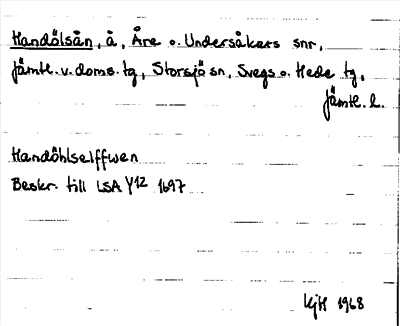 Handölsån, å, Åre o. Undersåkers snr,
Jämtl. v. doms. tg, Storsjö sn, Svegs o. Hede tg,
Jämtl. l.
Handöhlselffwen
Beskr. till LSA Y12 1697
KjH 1968